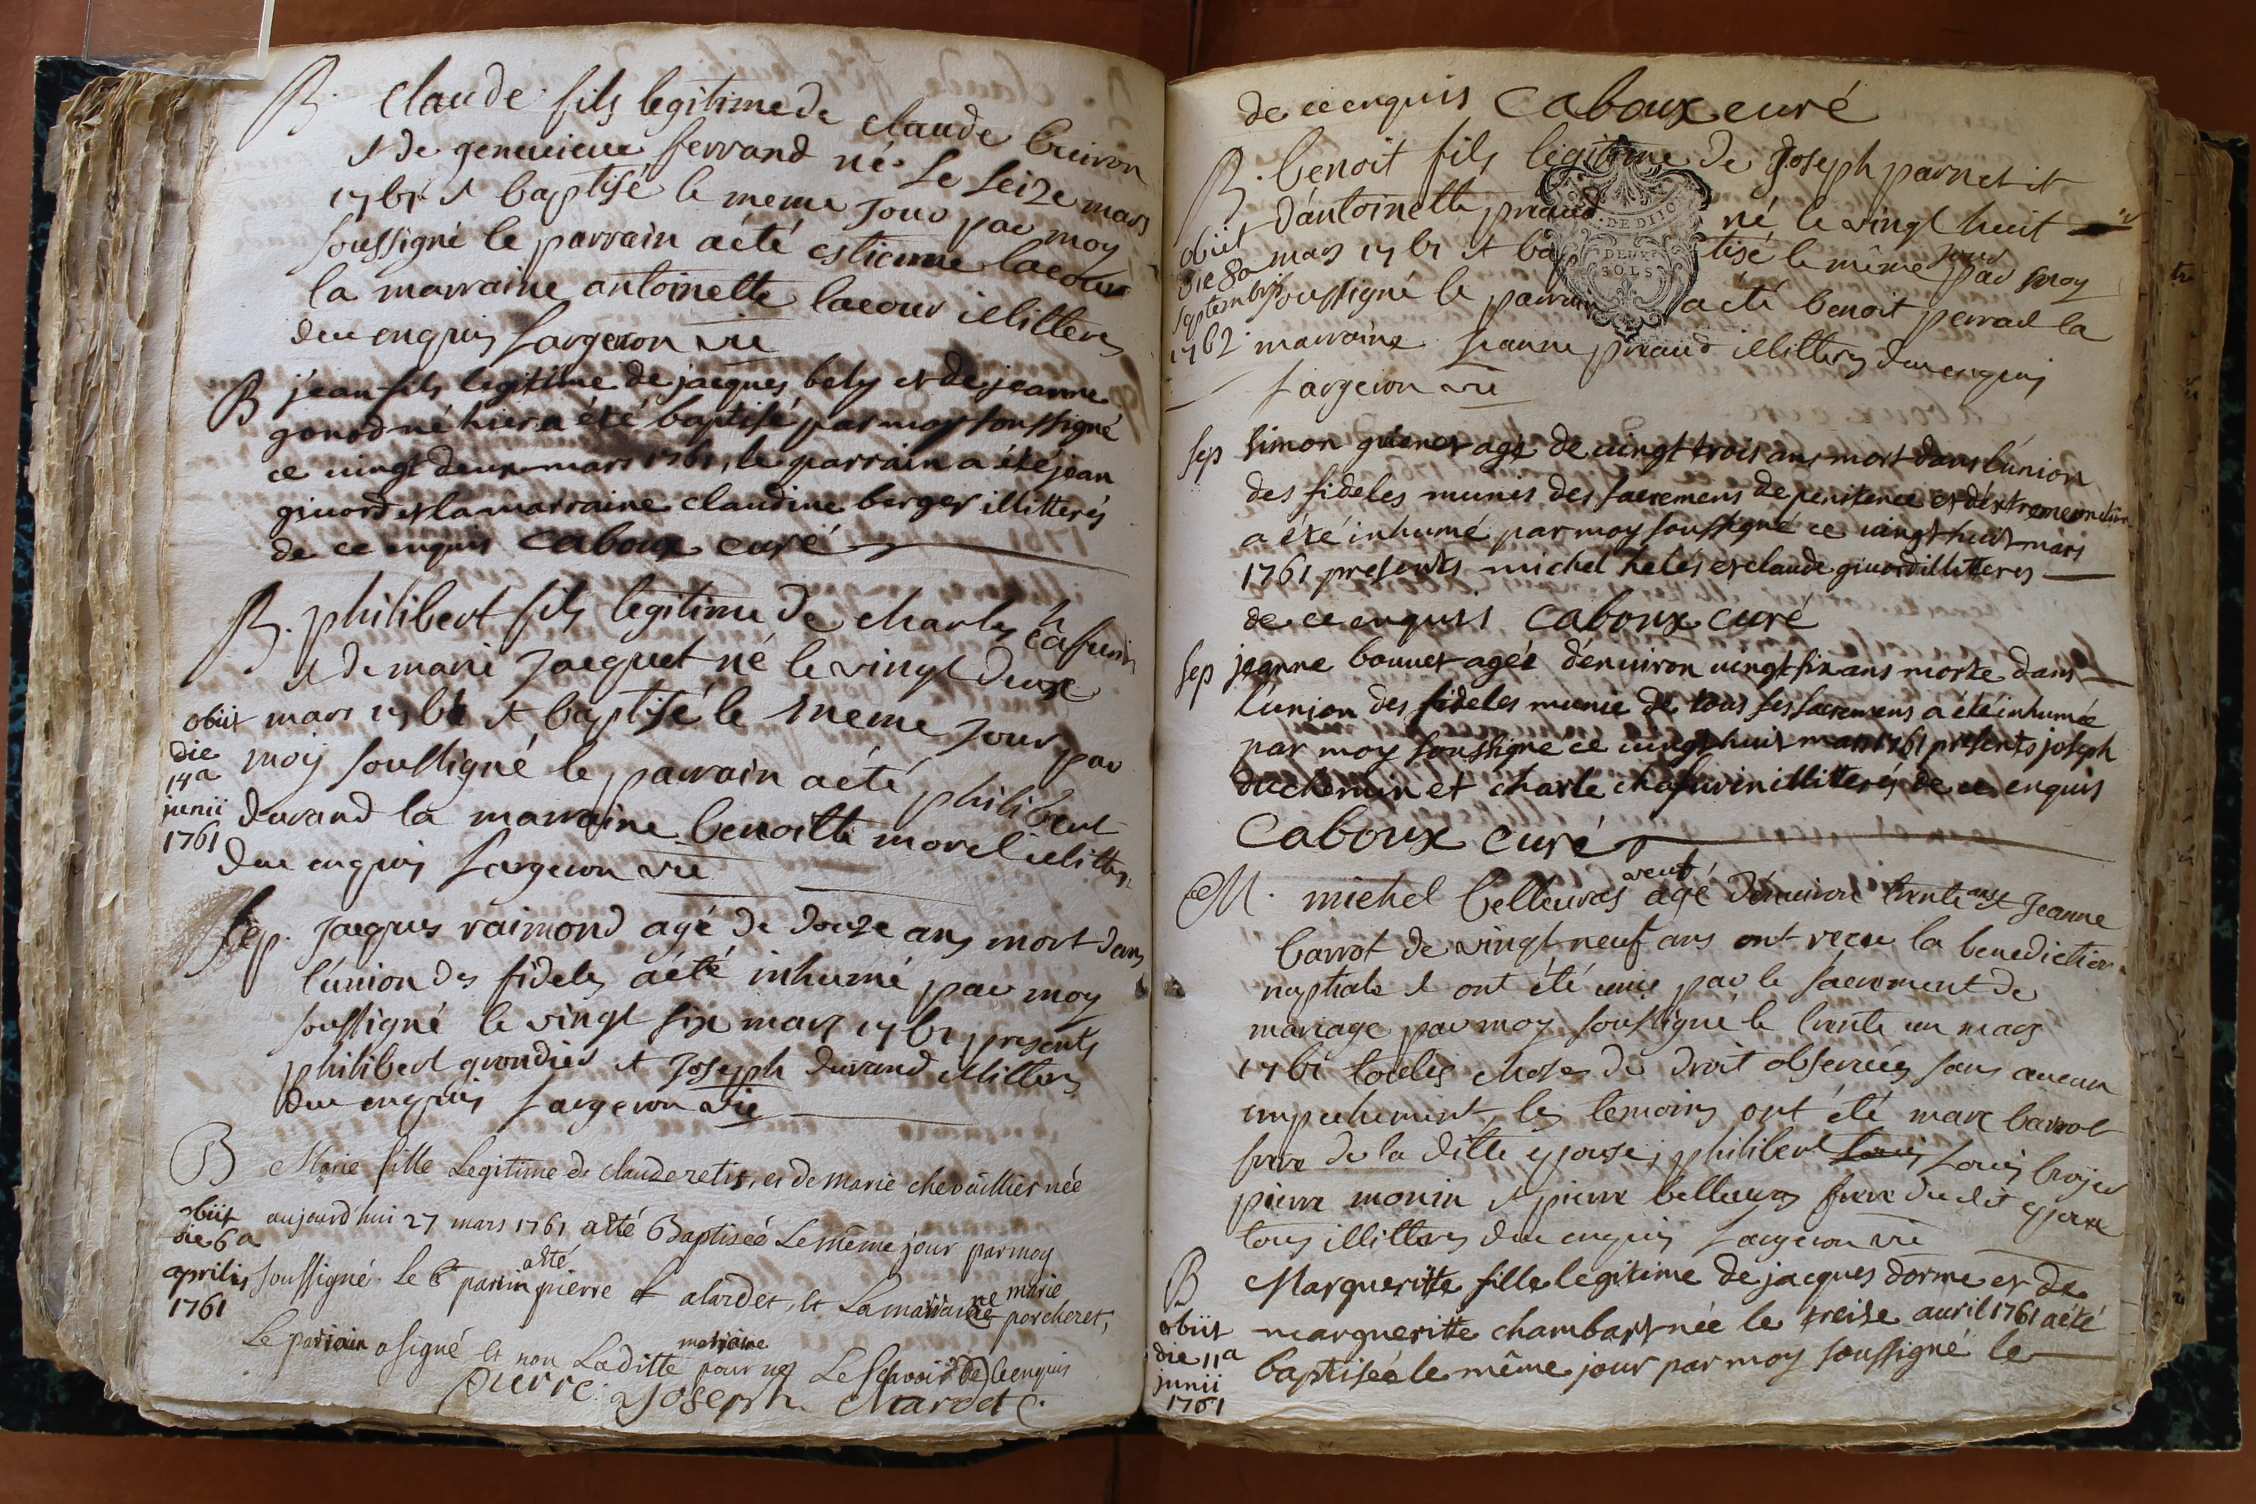 B. Claude fils legitime de claude Buiron
& de genevieve ferrand né le seize mars
1761 & baptisé le meme jour par moy
soussigné le parrain a été estienne lacour
la marraine antoinette lacour illitteres
de ce enquis fargeron vic
B jean fils legitime de jacques bely et de jeanne
gonod né hier a été baptisé par moy soussigné
ce vingt deux mars 1761, le parrain a été jean
givord et la marraine claudine berger illitterés
de ce enquis Caboux curé
B. philibert fils legitime de charles chafurin
& de marie Jacquet né le vingt deux
mars 1761 & baptisé le meme jour par
moy soussigné le parrain a été philibert
durand la marraine benoitte morel illitteres
de ce enquis fargeron vic
obiit
die
14a
junii
1761
Sep. Jacques raimond agé de douze ans mort dans
l'union des fideles a été inhumé par moy
soussigné le vingt six mars 1761 presents
philibert grondier & Joseph durand illitteres
de ce enquis fargeron vic
B Marie fille Legitime de claude retis, et de marie chevaillier née
aujourd'hui 27 mars 1761 a été Baptisée Le même jour par moy
soussigné. Le parrin a été pierre alardet, et La marraine marie porcheret,
Le parrain a signé et non Laditte marraine pour ne Le sçavoir de ce enquis
pierre joseph Alardet
obiit
die 6a
aprilis
1761
de ce enquis Caboux curé
B. benoit fils legitime de Joseph parnetit
d'antoinette priaud né le vingt huit
mars 1761 & baptisé le même jour par moy
soussigné le parrain a été benoit perrad la
marraine Jeanne priaud illitteres de ce enquis
fargeron vic
obiit
die 8a
septembris
1762
Sep Simon guenet agé de vingt trois ans mort dans l'union
des fideles munis des sacremens de penitence et d'extremeonction
a été inhumé par moy soussigné ce vingt huit mars
1761 presents michel helés et claude givord illitteres
de ce enquis Caboux curé
Sep jeanne bouvet agée d'environ vingt six ans morte dans
l'union des fideles munie de tous ses sacremens a été inhumée
par moy soussigné ce vingt huit mars 1761 presents joseph
duchemin et charle chafurin illitterés de ce enquis
Caboux curé
M. michel belleuvas veuf agé d'environ trente ans & Jeanne
barrot de vingt neuf ans ont recu la benediction
nuptiale & ont été unis par le sacrement de
mariage par moy soussigné le trente un mars
1761 toutes choses de droit observées sans aucun
empechement, les temoins ont été marc barrot
frere de la ditte epouse, philibert Louis broyer
pierre monin & pierre belleuvas frere du dit epoux
tous illitteres de ce enquis fargeron vic
B Margueritte fille legitime de jacques dorme et de
margueritte chambart née le treise avril 1761 a été
baptisée le même jour par moy soussigné le
obiit
die 11a
junii
1761
DE DIJON
DEUX
SOLS